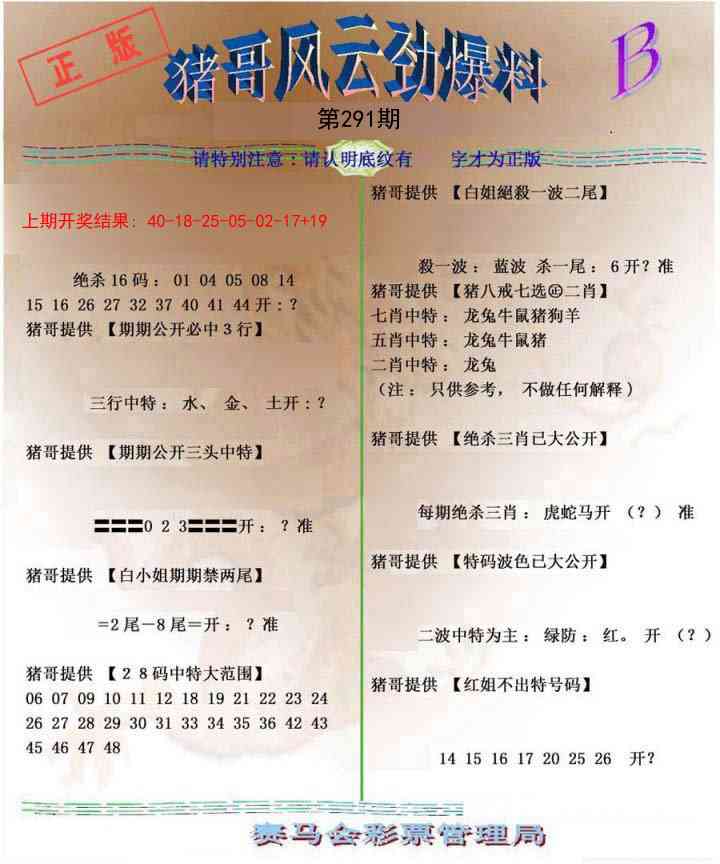 正版
猪哥风云劲爆料
B
第291期
请特别注意：请认明底纹有 字才为正版
上期开奖结果: 40-18-25-05-02-17+19
绝杀16码：01 04 05 08 14
15 16 26 27 32 37 40 41 44开：？
猪哥提供 【期期公开必中3行】
三行中特：水、金、土开：？
猪哥提供 【期期公开三头中特】
〓〓〓0 2 3〓〓〓开：？准
猪哥提供 【白小姐期期禁两尾】
=2尾－8尾＝开：？准
猪哥提供 【２８码中特大范围】
06 07 09 10 11 12 18 19 21 22 23 24
26 27 28 29 30 31 33 34 35 36 42 43
45 46 47 48
猪哥提供 【白姐絕殺一波二尾】
殺一波：蓝波 杀一尾：6开？准
猪哥提供 【猪八戒七选㊣二肖】
七肖中特：龙兔牛鼠猪狗羊
五肖中特：龙兔牛鼠猪
二肖中特：龙兔
（注：只供参考，不做任何解释）
猪哥提供 【绝杀三肖已大公开】
每期绝杀三肖：虎蛇马开 （？） 准
猪哥提供 【特码波色已大公开】
二波中特为主：绿防：红。 开 （？）
猪哥提供 【红姐不出特号码】
14 15 16 17 20 25 26 开？
赛马会彩票管理局